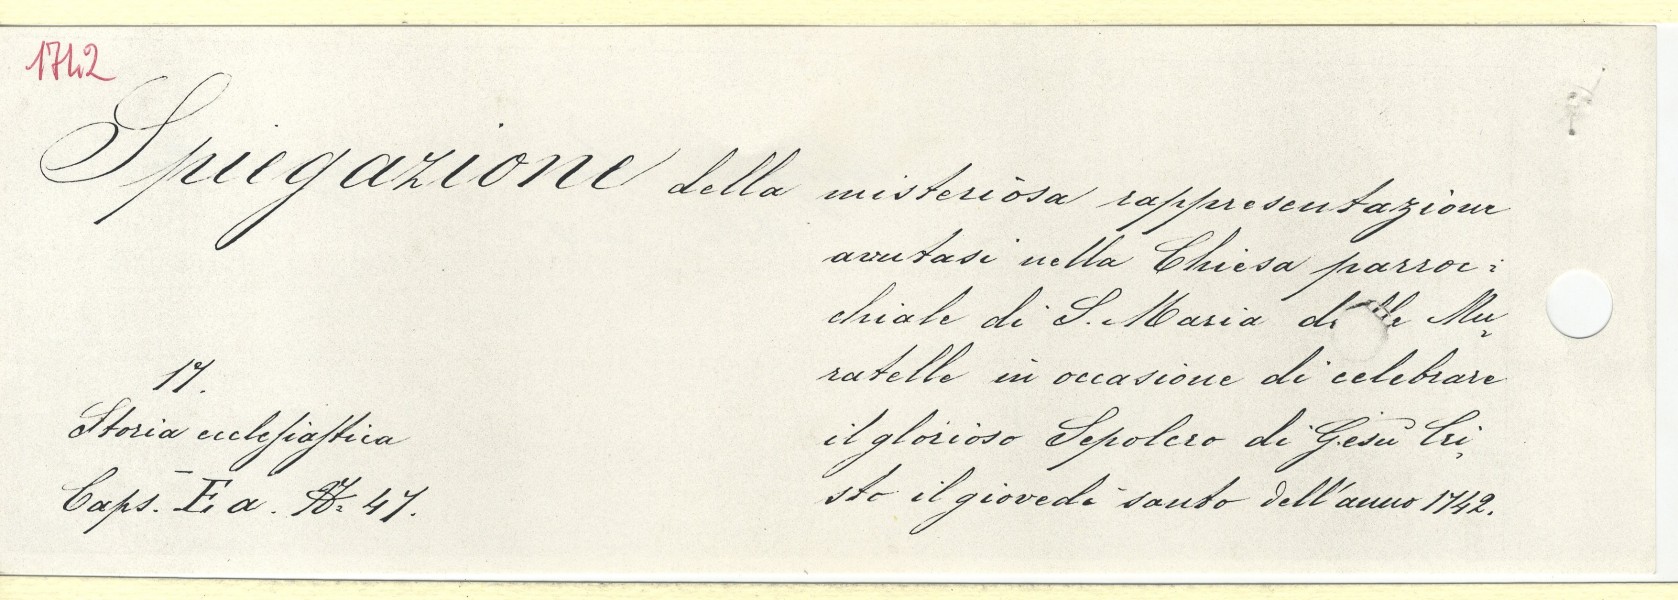 1742
Spiegazione della misteriosa rappresentazione
avutasi nella Chiesa parroc:
chiale di S. Maria delle Mu,
ratelle in occasione di celebrare
il glorioso Sepolcro di Gesù Cri,
sto il giovedì santo dell'anno 1742.
17.
Storia ecclesiastica
Caps. E a. N: 47.